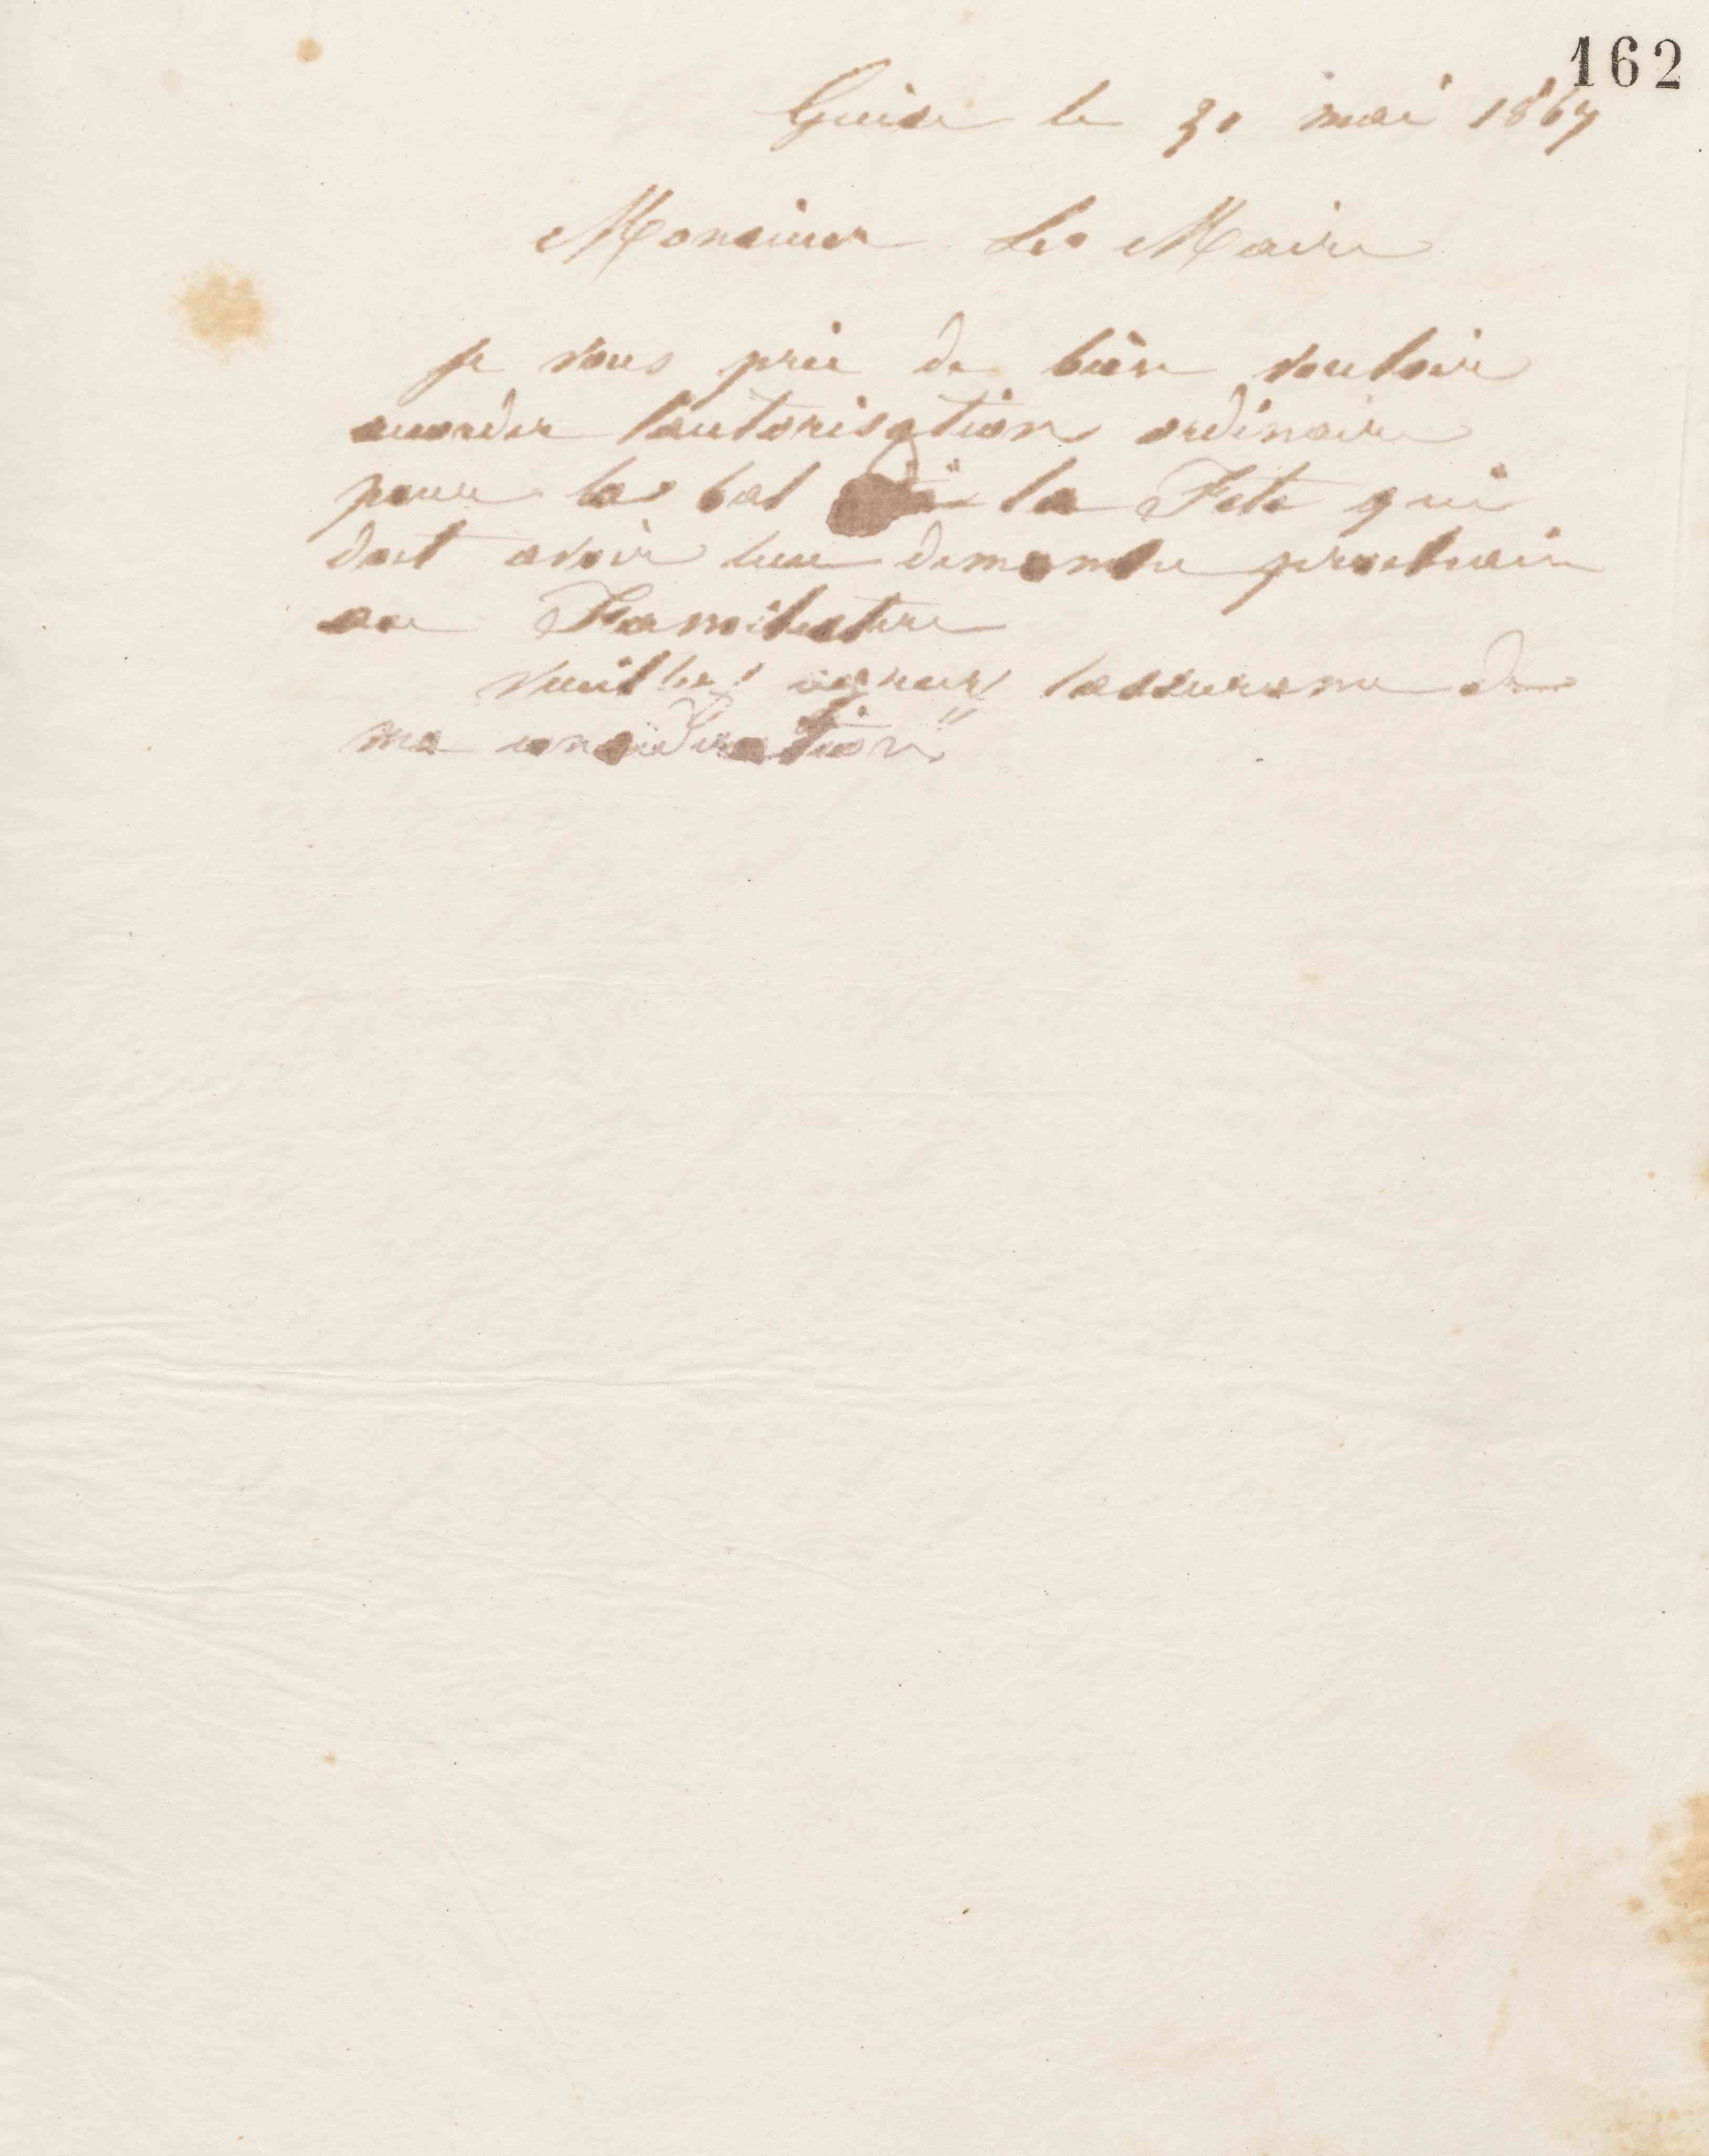 162
Guise le 30 mai 1867
Monsieur Le Maire
je vous prie de bien vouloir
accorder l'autorisation ordinaire
pour le bal la Fete qui
doit avoir lieu dimanche prochain
au Familistere
veuillez agréer l'assurance de
ma consideration